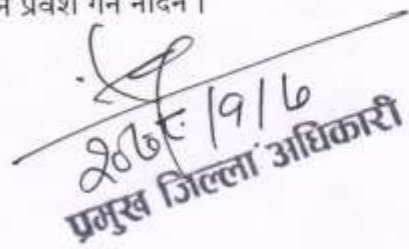 प्रवेश गर्न नदिने ।
२०७९/१/७
प्रमुख जिल्ला अधिकारी